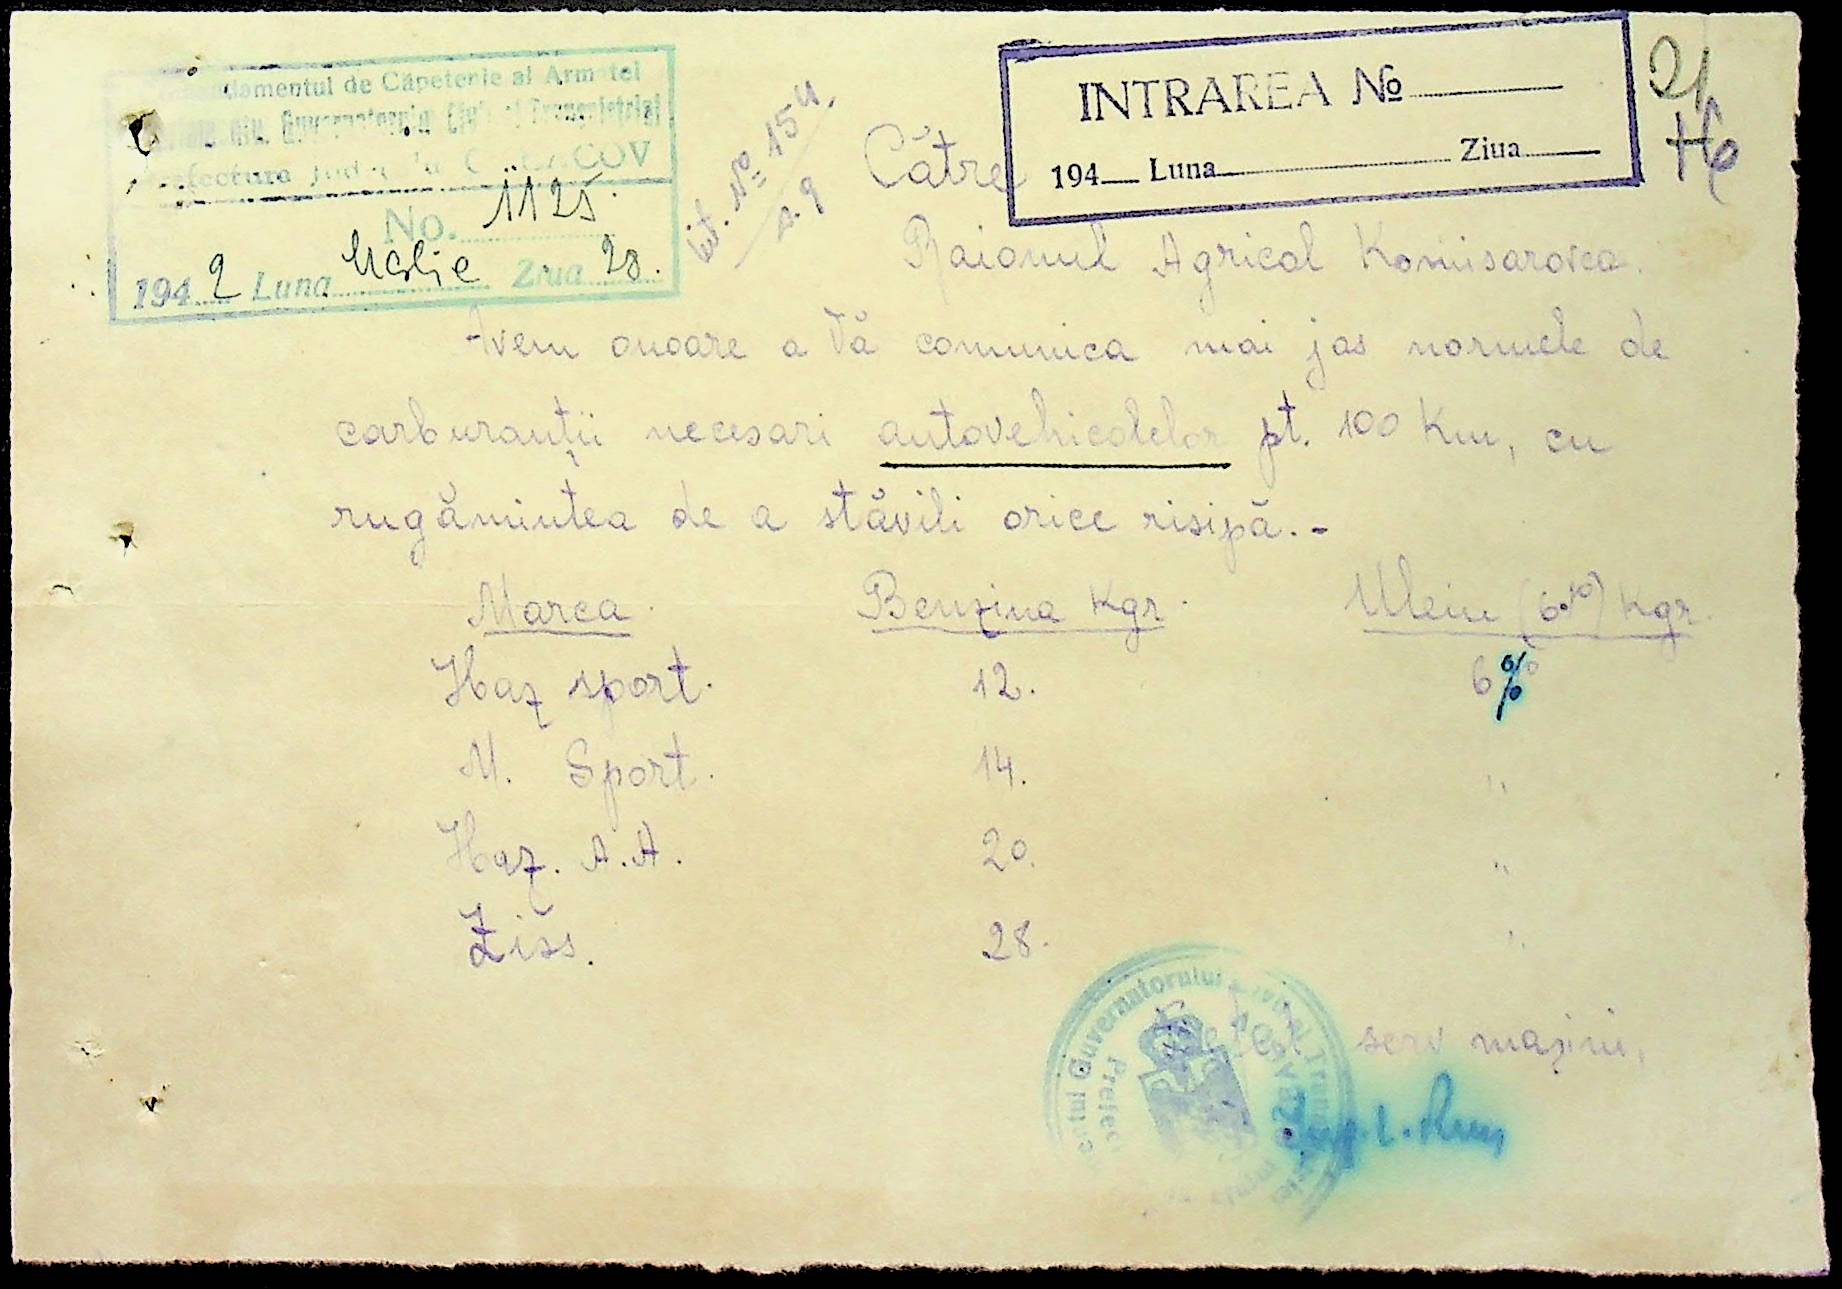 Comandamentul de Căpetenie al Armatei
Guvernatorului Civil al Transnistriei
Prefectura
No. 1125
1942 Luna Ziua 28.
INTRAREA No
194 Luna Ziua
21
Către
Raionul Agricol Komisarovca.
Avem onoare a Vă comunica mai jos normele de
carburanții necesari autovehicolelor pt. 100 Km, cu
rugămintea de a stăvili orice risipă.-
Marca Benzina Kgr. Uleiu (6%) Kgr.
Haz sport. 12. 6%
M. Sport. 14. "
Haz. A.A. 20. "
Ziss. 28. "
serv mașini,
Guvernatorului